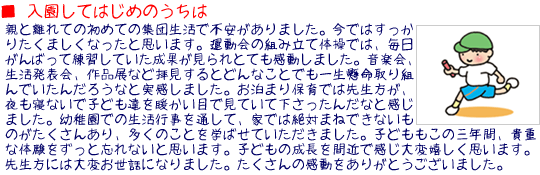 ■ 入園してはじめのうちは
親と離れての初めての集団生活で不安がありました。今ではすっか
りたくましくなったと思います。運動会の組み立て体操では、毎日
がんばって練習していた成果が見られとても感動しました。音楽会、
生活発表会、作品展など拝見するとどんなことでも一生懸命取り組
んでいたんだろうなと実感しました。お泊まり保育では先生方が、
夜も寝ないで子ども達を暖かい目で見ていて下さったんだなと感じ
ました。幼稚園での生活行事を通して、家では絶対まねできないも
のがたくさんあり、多くのことを学ばせていただきました。子どももこの三年間、貴重
な体験をずっと忘れないと思います。子どもの成長を間近で感じ大変嬉しく思います。
先生方には大変お世話になりました。たくさんの感動をありがとうございました。